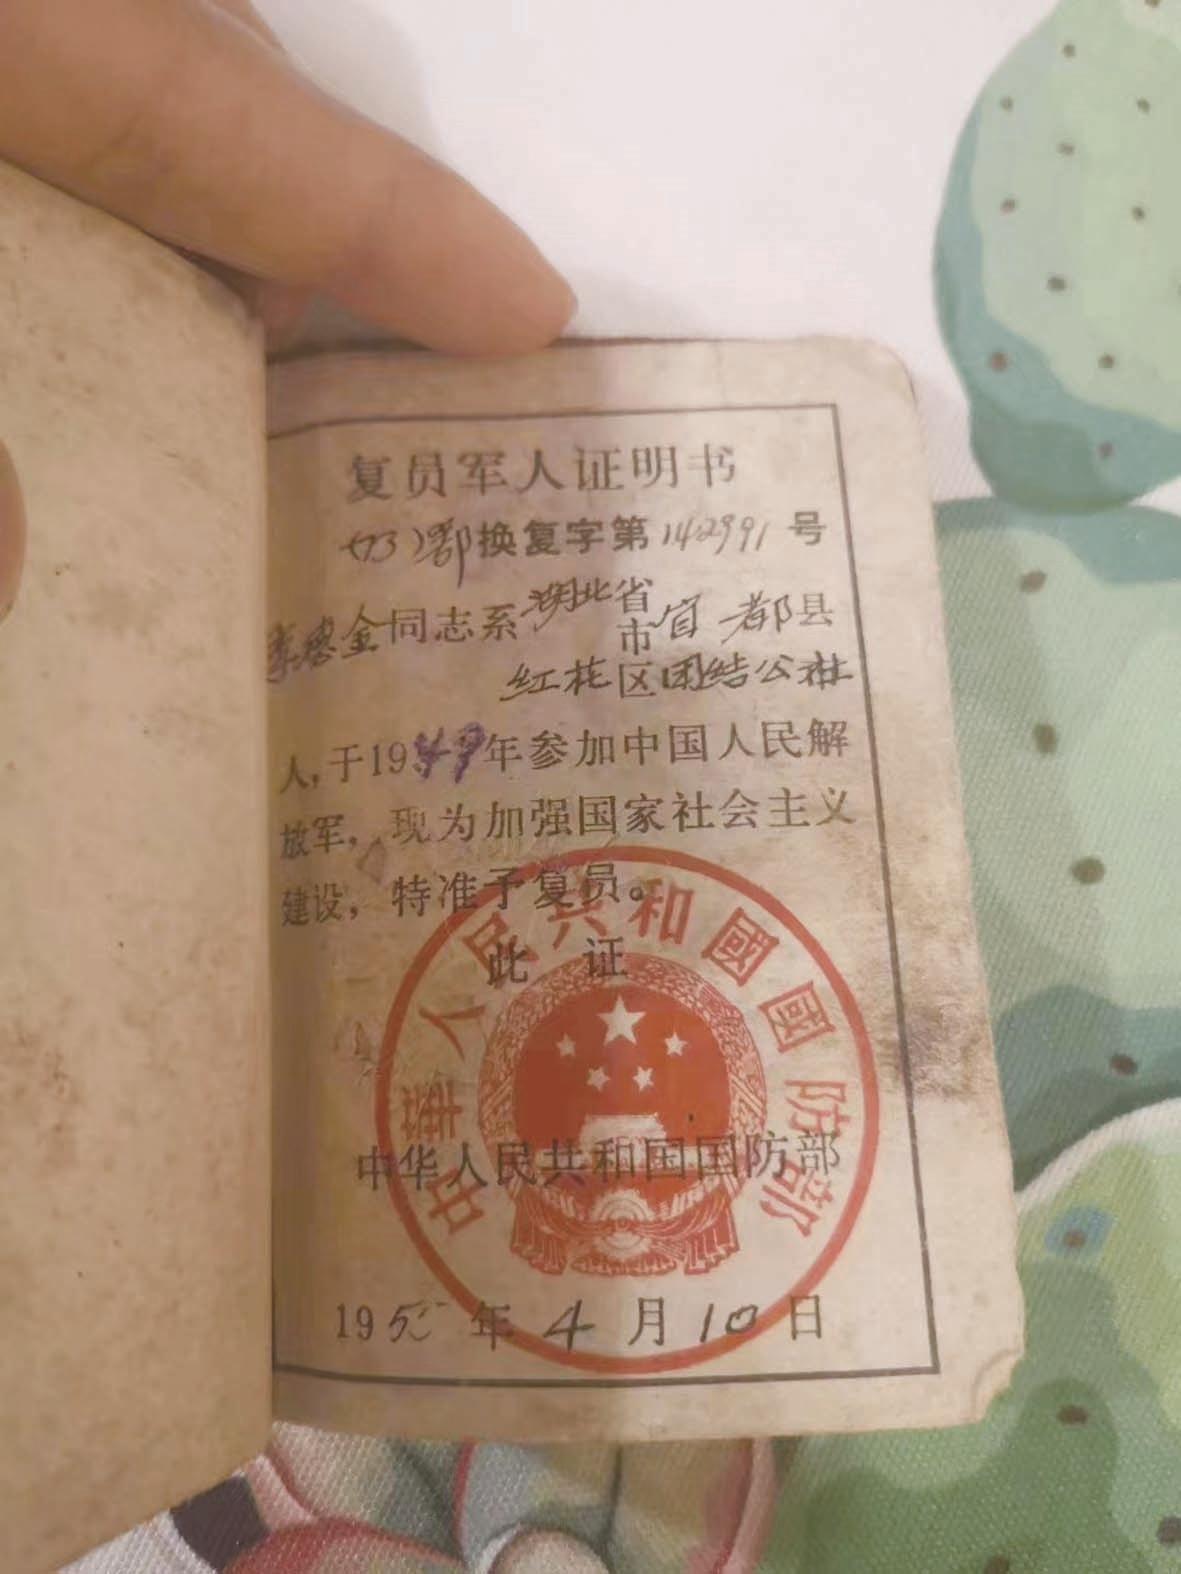 复员军人证明书
(73)鄂换复字第142991号
李德金同志系湖北省市宜都县
红花区团结公社
人,于1949年参加中国人民解
放军,现为加强国家社会主义
建设,特准予复员。
此证
中华人民共和国国防部
1955年4月10日
中華人民共和國國防部